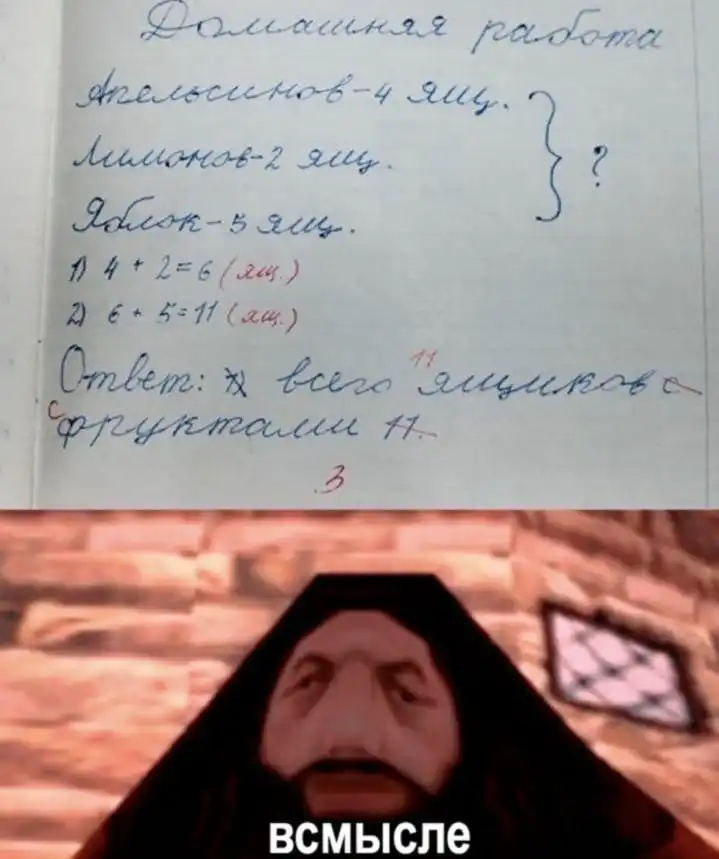 Домашняя работа
Апельсинов-4 ящ. } ?
Лимонов-2 ящ.
Яблок-5 ящ.
1) 4 + 2=6 (ящ.)
2) 6 + 5=11 (ящ.)
11
Ответ: всего ящиков с
с фруктами 11.
3
всмысле